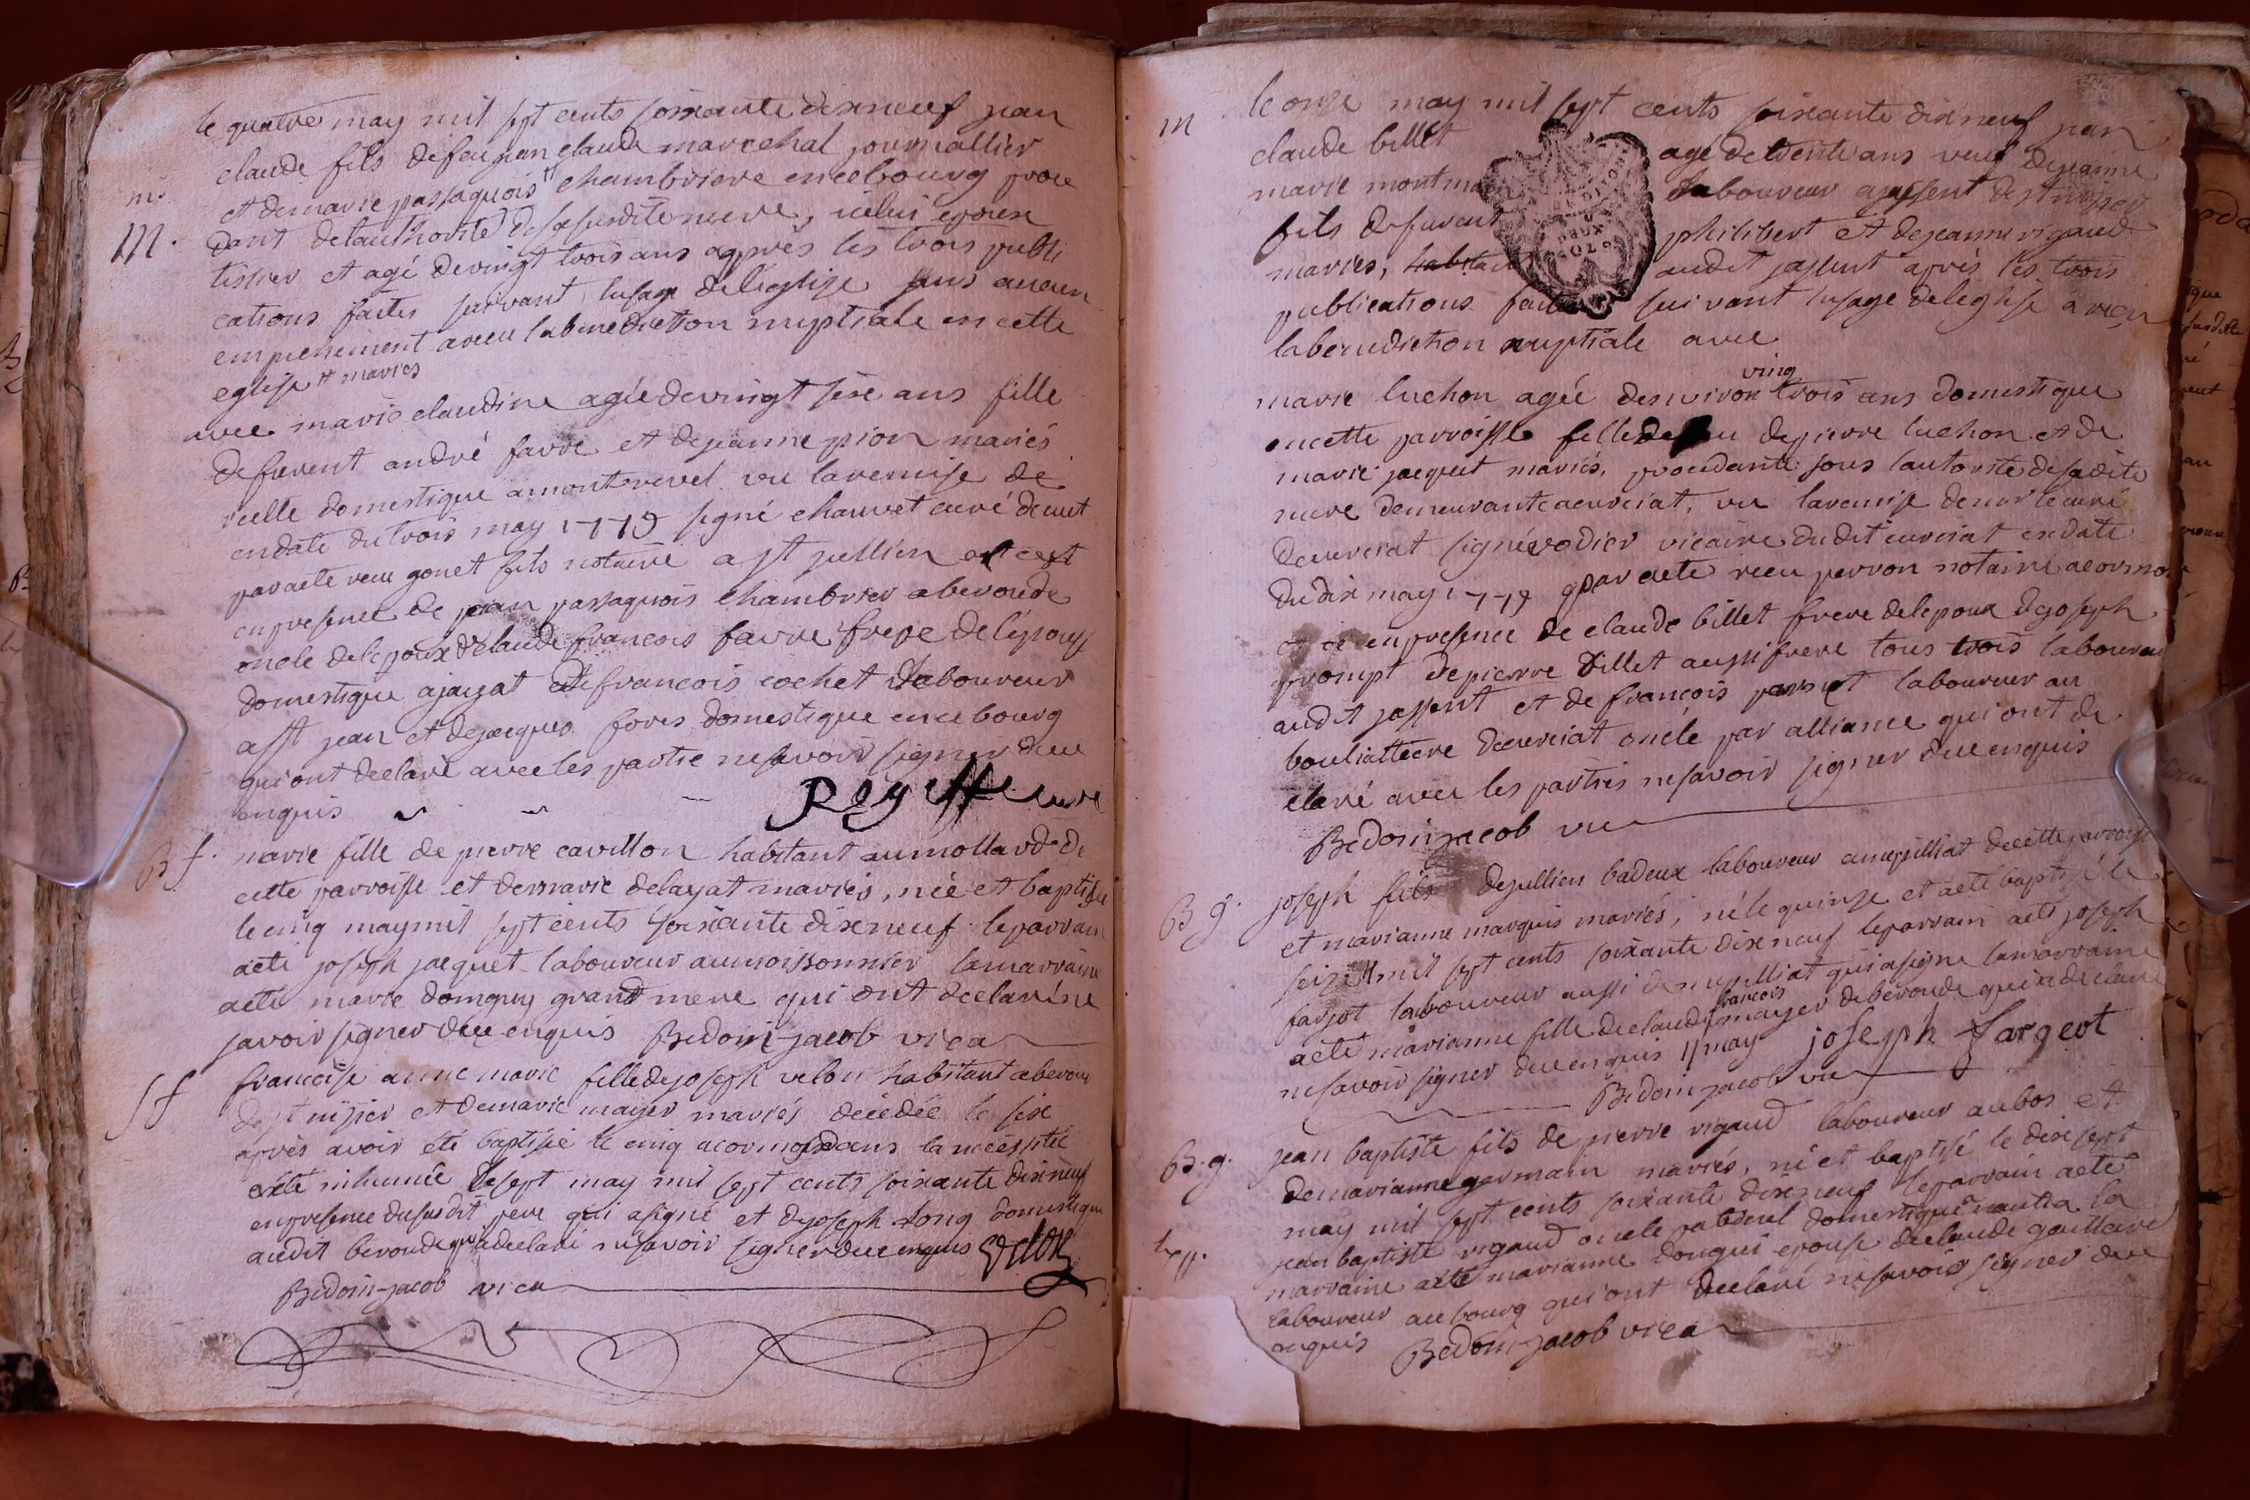 le quatre may mil sept cents soixante dixneuf jean
claude fils de feu jean claude marechal journallier
m.
et de marie passaquois # chambriere en ce bourg proce
M.
dant de lauthorité de sa susdite mere, icelui epoux
tissier et agé de vingt trois ans apprès les trois publi
cations faites suivant lusage de leglise sans aucun
empechement a receu la benediction nuptiale en cette
eglise # mariés
avec marie claudine agée de vingt sixe ans fille
de furent andré favre et de jeanne pion mariés
icelle domestique a montrevel vu la remise de
en date du trois may 1779 signé chauvet curé de cuet
par acte receu gonet fils notaire a st jullien et c'est
en presence de jean passaquois chambrier a beroude
oncle de lepoux de claude francois favre frere de lepouse
domestique a jayat et de francois cochet laboureur
a st jean et de jacques fores domestique en ce bourg
qui ont declaré avec les partie ne savoir signer de ce
enquis
Reyssie curé
B f.
marie fille de pierre cavillon habitant au mollard de
cette parroisse et de marie delayat mariés, née et baptisée
le cinq may mil sept cents soixante dixneuf le parrain
a été joseph jacquet laboureur au moissonnier la marraine
a été marie donguy grand mere qui ont declaré ne
savoir signer de ce enquis Bedoin-jacob vica
S f
francoise anne marie fille de joseph velon habitant a beroude
de st nizier et de marie mayer mariés decedée le sixe
après avoir été baptisée le cinq a cormoz dans la necessité
a été inhumée le sept may mil sept cents soixante dixneuf
en presence du susdit pere qui a signé et de joseph long domestique
audit beroude qui a declaré ne savoir signer de ce enquis Velon
Bedoin-jacob vica
m
le onze may mil sept cents soixante dixneuf jean
claude billet agé de trente ans veuf de jeanne
marie laboureur a jassent de st nizier
fils de furent philibert et de jeanne rigaud
mariés, audit jassent après les trois
publications faites suivant lusage de leglise a receu
la benediction nuptiale avec
ving
marie luchon agée denviron trois ans domestique
en cette parroisse fille de de pierre luchon et de
marie jacquet mariés, procedante sous lautorité de sa dite
mere demeurante a curciat, vu la remise de mr le curé
de curciat signé vodier vicaire du dit curciat en date
du dix may 1779 par acte receu perron notaire a cormoz
et ce en presence de claude billet frere de lepoux de joseph
prompt de pierre billet aussi frere tous trois laboureur
audit jassent et de françois laboureur au
de curciat oncle par alliance qui ont de
claré avec les parties ne savoir signer de ce enquis
Bedoin-jacob vic
B g.
joseph fils de jullien badeux laboureur a mepilliat de cette parroisse
et marianne marquis mariés, né le quinze et a été baptisé le
seize # mil sept cents soixante dixneuf le parrain a été joseph
farjot laboureur aussi de mepilliat qui a signé la marraine
francois
a été marianne fille de claude mayer de beroude qui a declaré
ne savoir signer de ce enquis # may joseph fargeot
Bedoin-jacob vic
B. g.
jean baptiste fils de pierre rigaud laboureur au bos et
de marianne germain mariés, né et baptisé le dixe sept
may mil sept cents soixante dixneuf le parrain a été
jean baptiste rigaud oncle paternel domestique la
marraine a été marianne donguy epouse de claude gaillard
laboureur au bourg qui ont declaré ne savoir signer de ce
enquis Bedoin-jacob vica